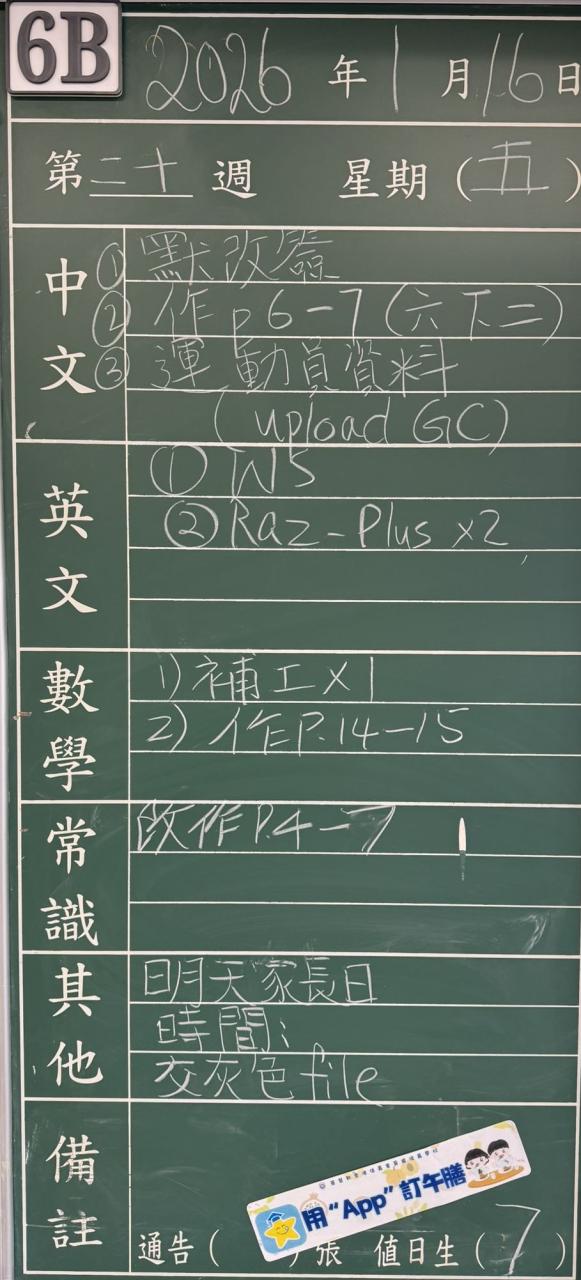 6B
2026年1月16日
第二十週 星期（五）
中文
① 默改簽
② 作p6-7(六下二)
③ 運動員資料
(upload GC)
英文
① W5
② Raz-Plus x2
數學
1) 補工x1
2) 作P.14-15
常識
改作P.4-7
其他
明天家長日
時間:
交灰色file
備註
用“App”訂午膳
通告（ ）張 值日生（7）